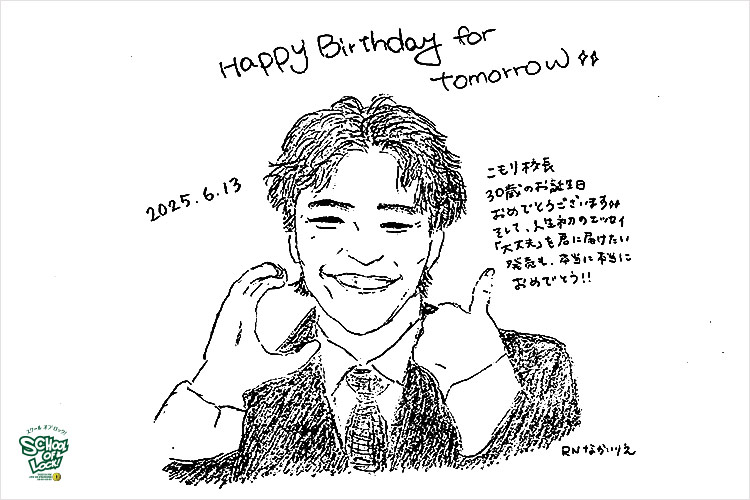 Happy Birthday for
tomorrow
2025.6.13
こもり校長
30歳のお誕生日
おめでとうございます
そして、人生初のエッセイ
「大丈夫」を君に届けたい
発売も、本当に本当に
おめでとう!!
RNなかいりえ
スクール オブ ロック!
SCHOOL
OF
LOCK!